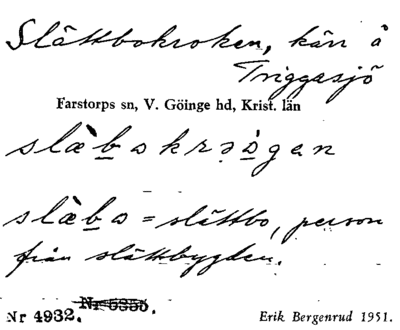 Slättbokroken, kärr å
Triggasjö
Farstorps sn, V. Göinge hd, Krist. län
slæ̀bokrɔgen
slæ̀bo = slättbo, person
från slättbygden.
Nr 5350.
Nr 4932.
Erik Bergenrud 1951.